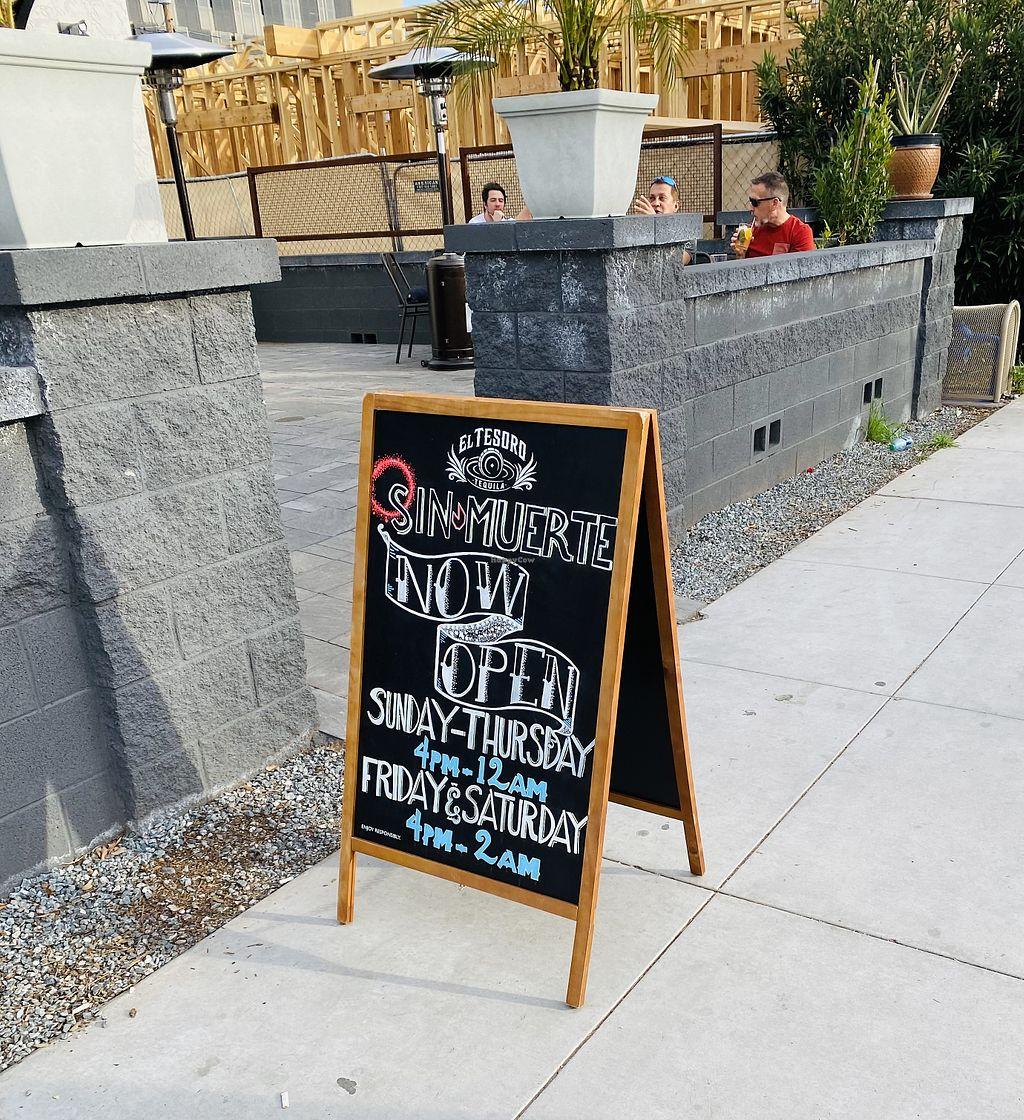 EL TESORO
TEQUILA
SIN MUERTE
HappyCow
NOW
OPEN
SUNDAY-THURSDAY
4PM - 12AM
FRIDAY & SATURDAY
4PM - 2AM
ENJOY RESPONSIBLY.